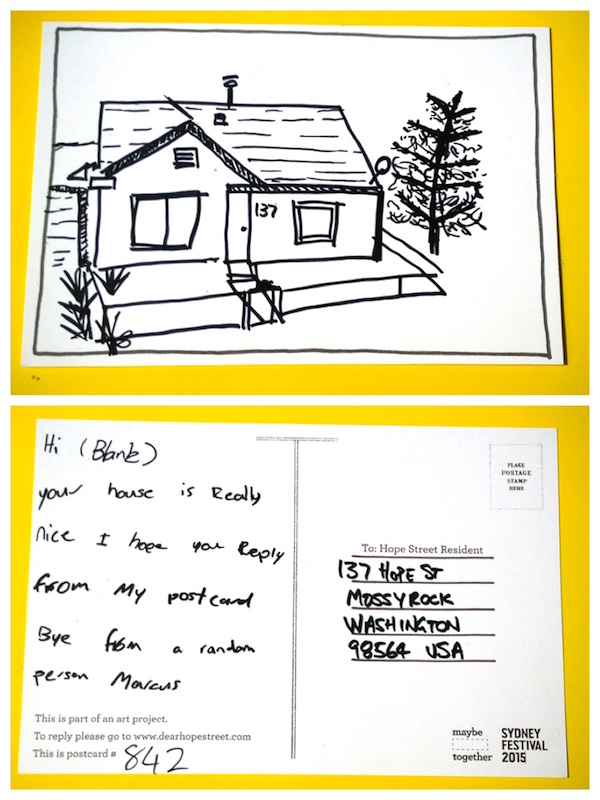 137
Hi (Blank)
your house is Really
nice I hope you Reply
from My postcard
Bye from a random
person Marcus
This is part of an art project.
To reply please go to www.dearhopestreet.com
This is postcard # 842
PLACE
POSTAGE
STAMP
HERE
To: Hope Street Resident
137 HOPE ST
MOSSYROCK
WASHINGTON
98564 USA
maybe
together
SYDNEY
FESTIVAL
2015